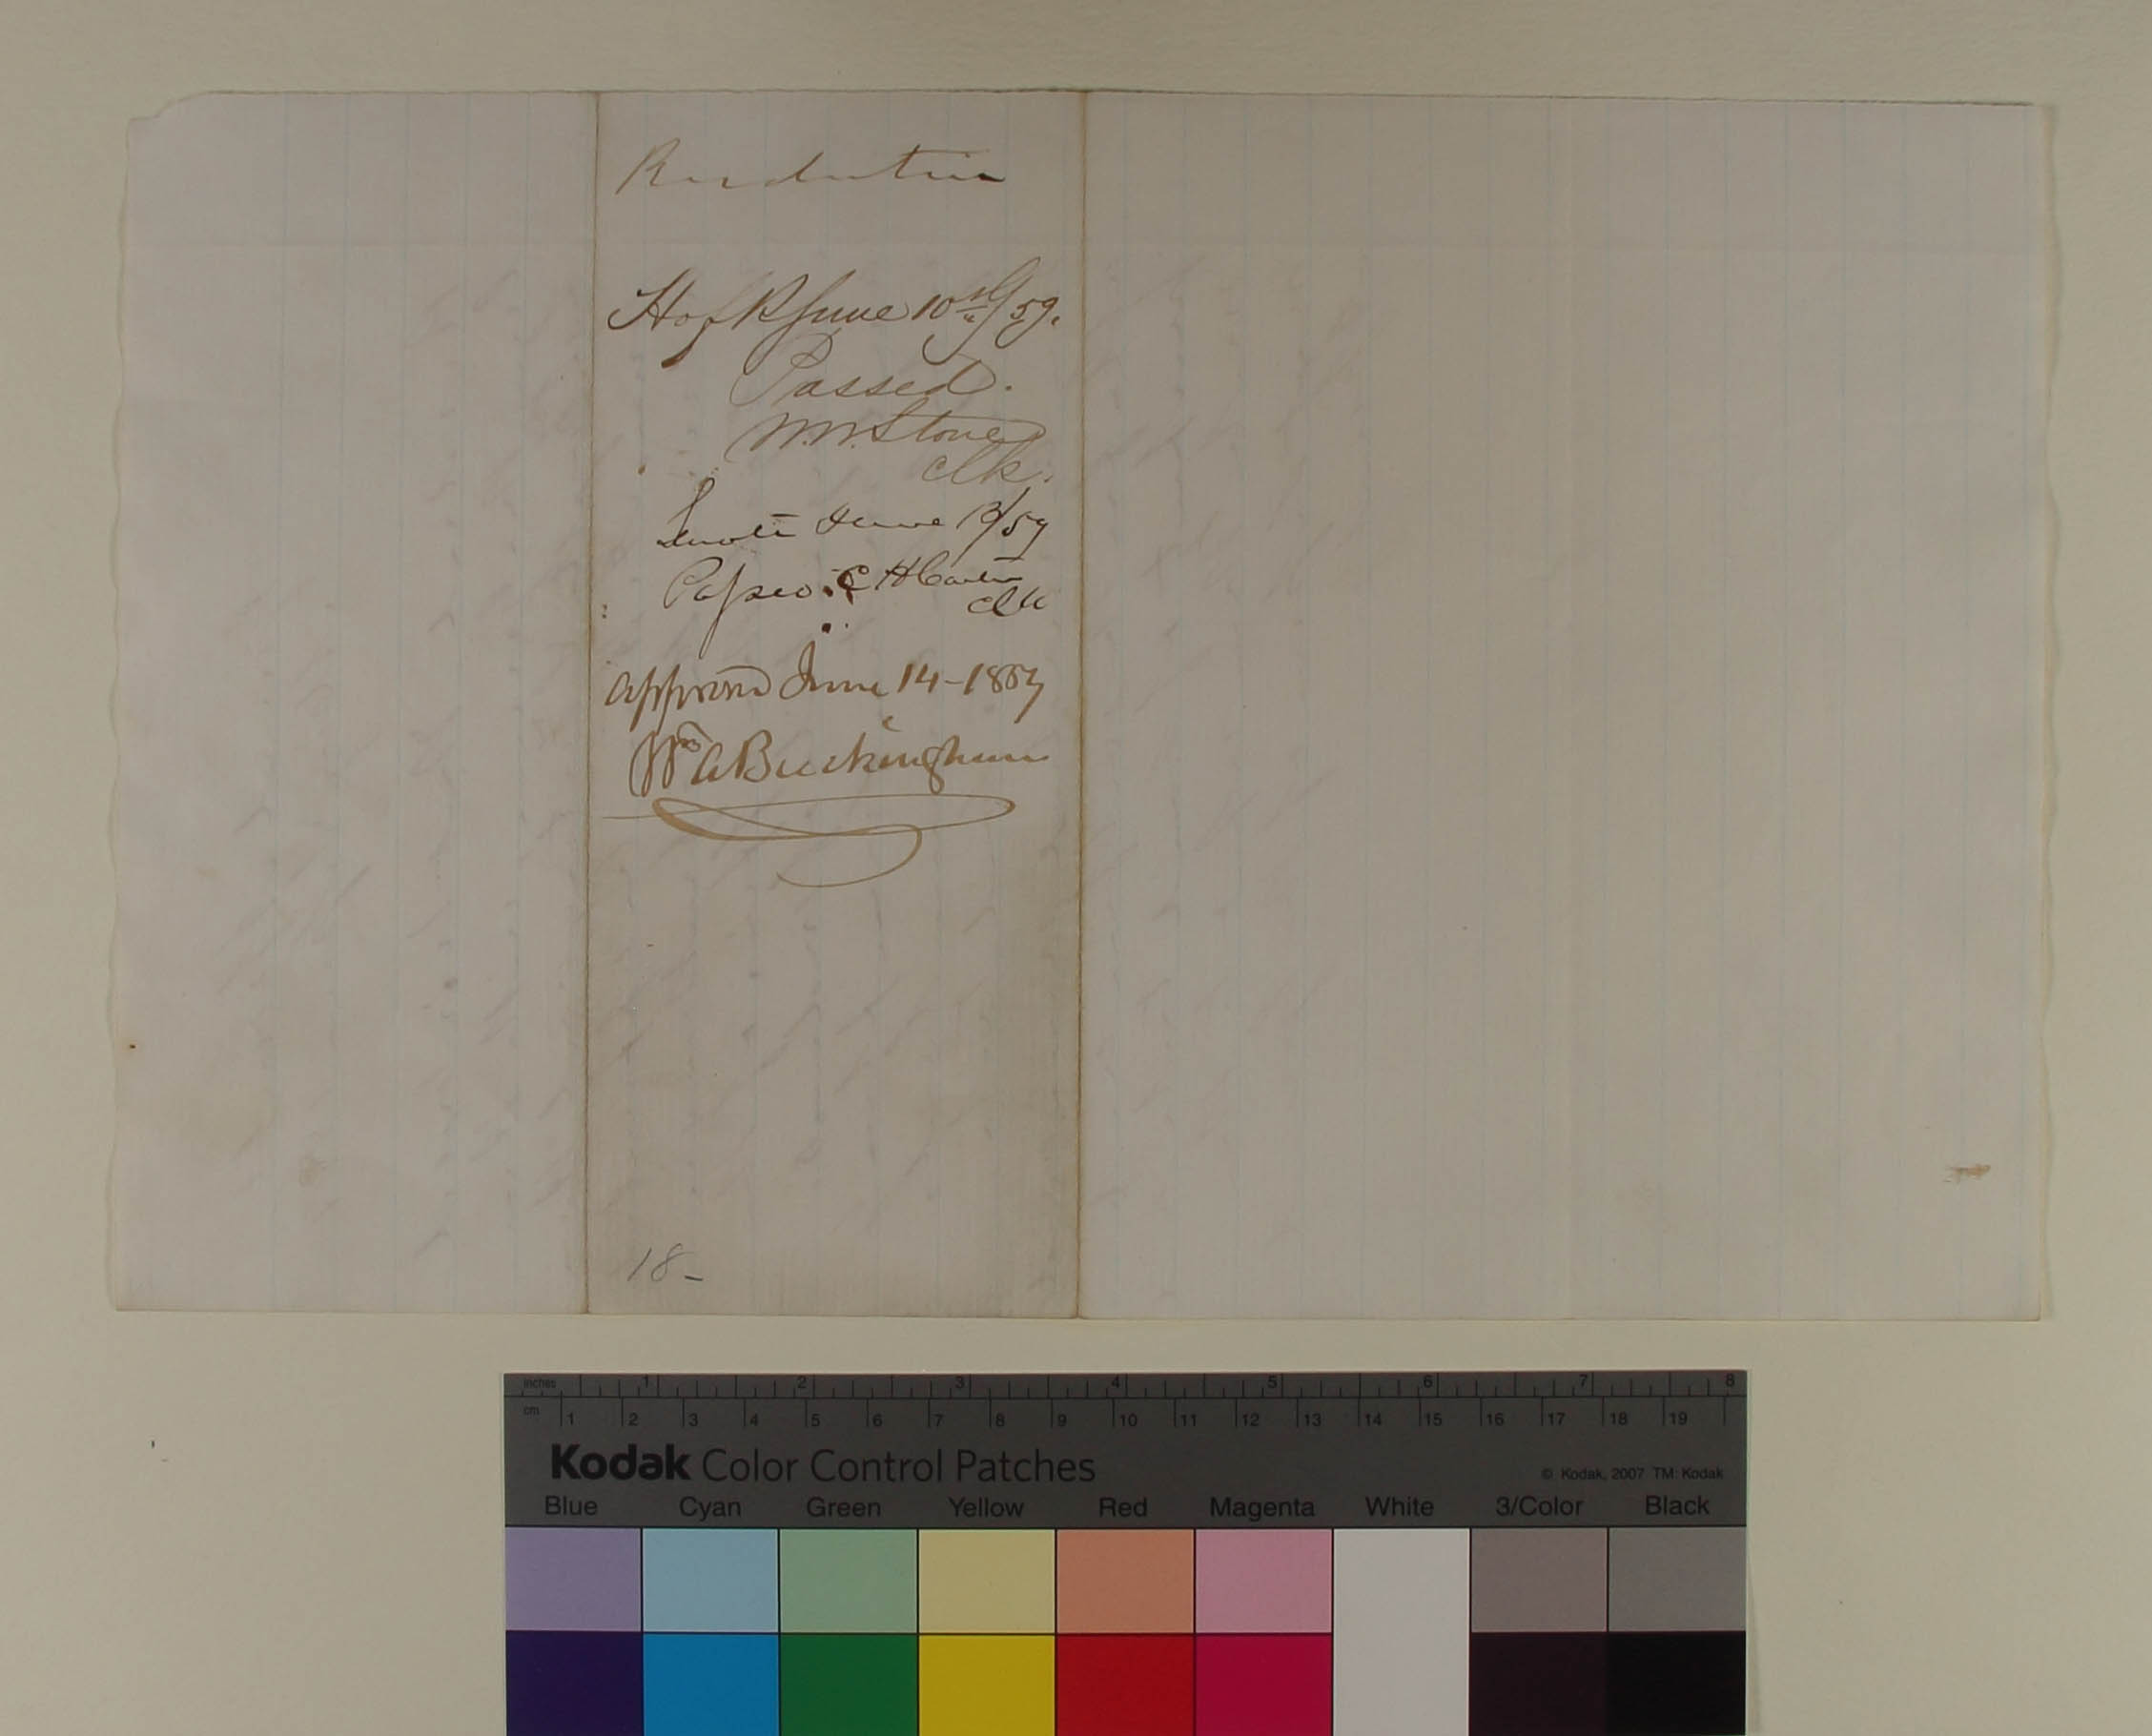 Resolution
H of R June 10th/59.
Passed.
W.W. Stone
Clk.
Senate June 13/59
Passed. C H Carter
Clk
Approved June 14-1859
Wm A Buckingham
18-
inches 1 2 3 4 5 6 7 8
cm 1 2 3 4 5 6 7 8 9 10 11 12 13 14 15 16 17 18 19
Kodak Color Control Patches
© Kodak, 2007 TM: Kodak
Blue Cyan Green Yellow Red Magenta White 3/Color Black